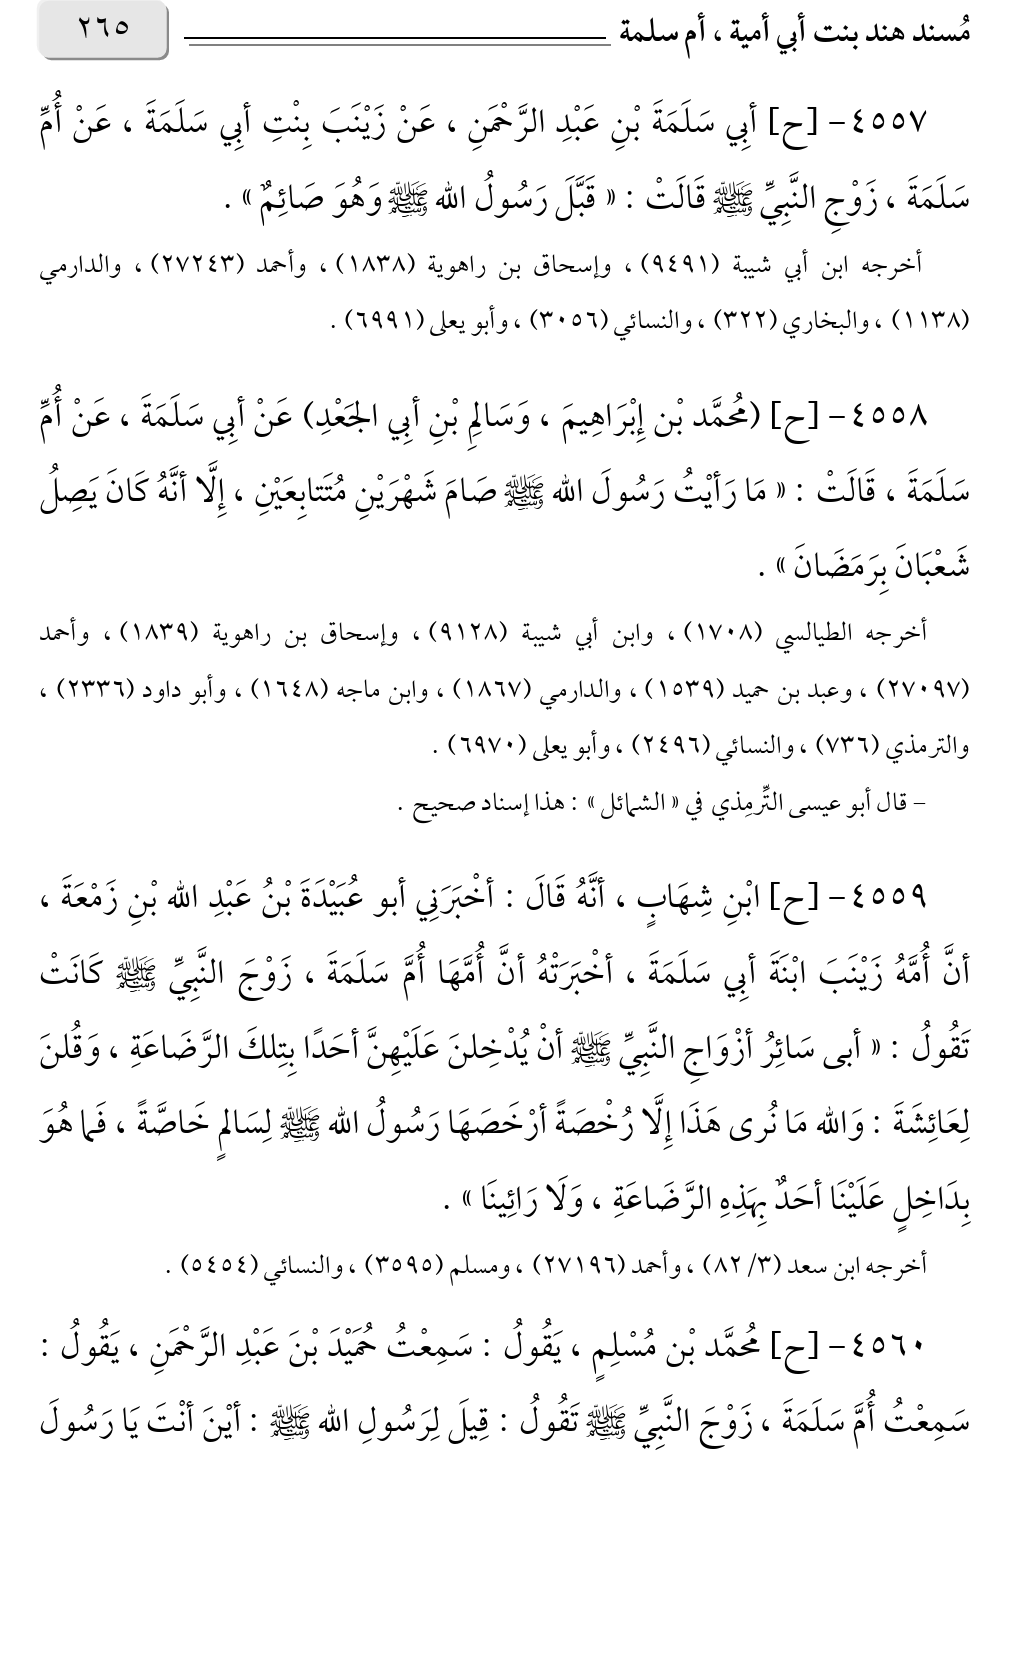 مُسند هند بنت أبي أمية ، أم سلمة ٢٦٥
٤٥٥٧- [ح] أبِي سَلَمَةَ بْنِ عَبْدِ الرَّحْمَنِ ، عَنْ زَيْنَبَ بِنْتِ أبِي سَلَمَةَ ، عَنْ أُمِّ
سَلَمَةَ ، زَوْجِ النَّبِيِّ ﷺ قَالَتْ : « قَبَّلَ رَسُولُ الله ﷺ وَهُوَ صَائِمٌ » .
أخرجه ابن أبي شيبة (٩٤٩١) ، وإسحاق بن راهوية (١٨٣٨) ، وأحمد (٢٧٢٤٣) ، والدارمي
(١١٣٨) ، والبخاري (٣٢٢) ، والنسائي (٣٠٥٦) ، وأبو يعلى (٦٩٩١) .
٤٥٥٨- [ح] (مُحمَّد بْن إِبْرَاهِيمَ ، وَسَالِمِ بْنِ أبِي الجَعْدِ) عَنْ أبِي سَلَمَةَ ، عَنْ أُمِّ
سَلَمَةَ ، قَالَتْ : « مَا رَأيْتُ رَسُولَ الله ﷺ صَامَ شَهْرَيْنِ مُتَتابِعَيْنِ ، إِلَّا أنَّهُ كَانَ يَصِلُ
شَعْبَانَ بِرَمَضَانَ » .
أخرجه الطيالسي (١٧٠٨) ، وابن أبي شيبة (٩١٢٨) ، وإسحاق بن راهوية (١٨٣٩) ، وأحمد
(٢٧٠٩٧) ، وعبد بن حميد (١٥٣٩) ، والدارمي (١٨٦٧) ، وابن ماجه (١٦٤٨) ، وأبو داود (٢٣٣٦) ،
والترمذي (٧٣٦) ، والنسائي (٢٤٩٦) ، وأبو يعلى (٦٩٧٠) .
– قال أبو عيسى التِّرمِذي في « الشمائل » : هذا إسناد صحيح .
٤٥٥٩- [ح] ابْنِ شِهَابٍ ، أنَّهُ قَالَ : أخْبَرَنِي أبو عُبَيْدَةَ بْنُ عَبْدِ الله بْنِ زَمْعَةَ ،
أنَّ أُمَّهُ زَيْنَبَ ابْنَةَ أبِي سَلَمَةَ ، أخْبَرَتْهُ أنَّ أُمَّهَا أُمَّ سَلَمَةَ ، زَوْجَ النَّبِيِّ ﷺ كَانَتْ
تَقُولُ : « أبى سَائِرُ أزْوَاجِ النَّبِيِّ ﷺ أنْ يُدْخِلنَ عَلَيْهِنَّ أحَدًا بِتِلكَ الرَّضَاعَةِ ، وَقُلنَ
لِعَائِشَةَ : وَالله مَا نُرى هَذَا إِلَّا رُخْصَةً أرْخَصَهَا رَسُولُ الله ﷺ لِسَالمٍ خَاصَّةً ، فَما هُوَ
بِدَاخِلٍ عَلَيْنَا أحَدٌ بِهَذِهِ الرَّضَاعَةِ ، وَلَا رَائِينَا » .
أخرجه ابن سعد (٣/ ٨٢) ، وأحمد (٢٧١٩٦) ، ومسلم (٣٥٩٥) ، والنسائي (٥٤٥٤) .
٤٥٦٠- [ح] مُحمَّد بْن مُسْلِمٍ ، يَقُولُ : سَمِعْتُ حُمَيْدَ بْنَ عَبْدِ الرَّحْمَنِ ، يَقُولُ :
سَمِعْتُ أُمَّ سَلَمَةَ ، زَوْجَ النَّبِيِّ ﷺ تَقُولُ : قِيلَ لِرَسُولِ الله ﷺ : أيْنَ أنْتَ يَا رَسُولَ